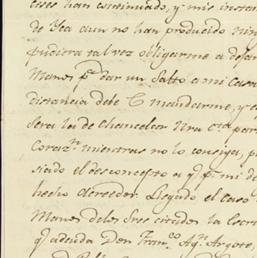 eses han continuado, y mis instan
de Yca aun no han producido nin
pudiera tal vez obligarme a dejar
Manos pa. dar un Salto a mi Casa
distancia dele C mandarme, y e
Sera la de Chancelar Nra cta. par
Corazn. mientras no lo consiga, p
siado el desconcepto a q. pr. mi de
hecho acreedor. Llegado el caso
Manos delos Sres citados la Escri
q. adeuda Don Franco. Agn. Argote,